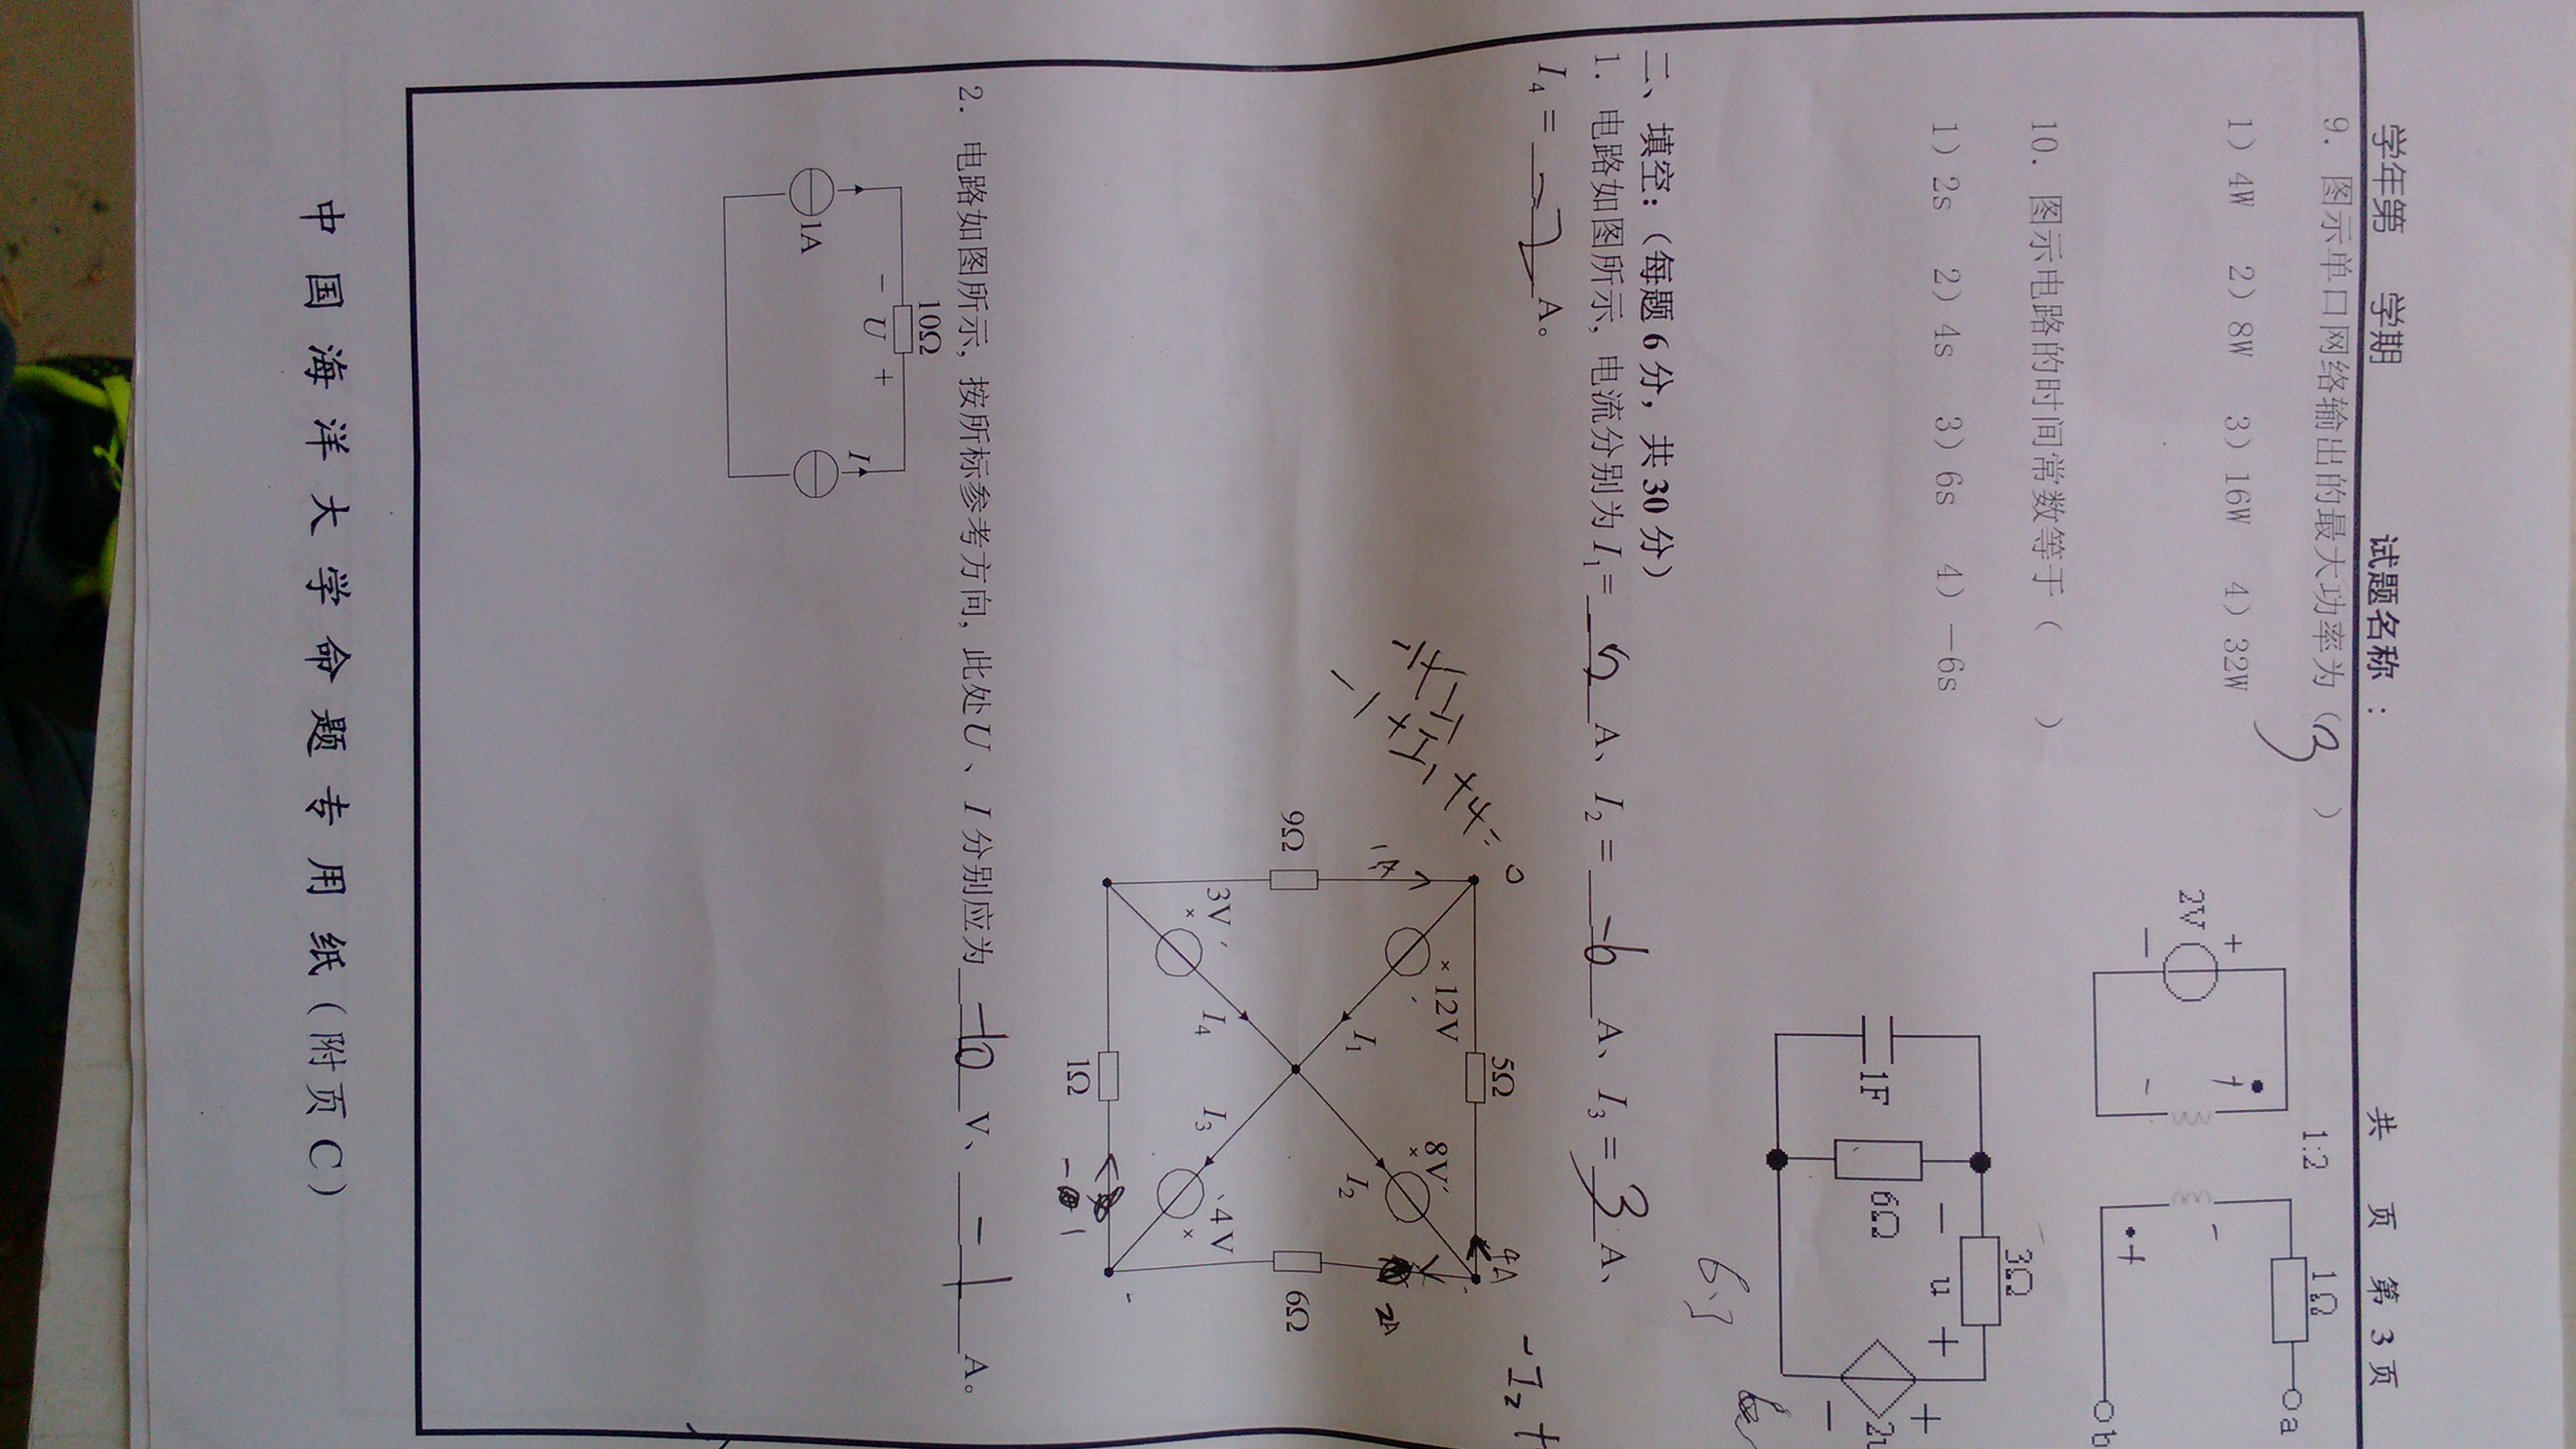 学年第 学期 试题名称： 共 页 第 3 页
9. 图示单口网络输出的最大功率为（3 ）
1）4W 2）8W 3）16W 4）32W
1:2
1Ω
a
+
2V
—
+
-
-
+
b
10. 图示电路的时间常数等于（ ）
1）2s 2）4s 3）6s 4）—6s
3Ω
— u +
1F
6Ω
+
2u
—
6.3
二、填空:（每题 6 分，共 30 分）
1. 电路如图所示, 电流分别为 I1= 5 A、I2 = -6 A、I3 = 3 A、
I4 = -2 A。
-I2 +
-1+I1+4=0
5Ω
4A
× 12V
8V
×
2A
I1
I2
9Ω
6Ω
3V
×
I4
I3
4V
×
1Ω
2. 电路如图所示, 按所标参考方向, 此处U、I 分别应为 -10 V、 -1 A。
10Ω
− U +
I
1A
中国海洋大学命题专用纸(附页C)